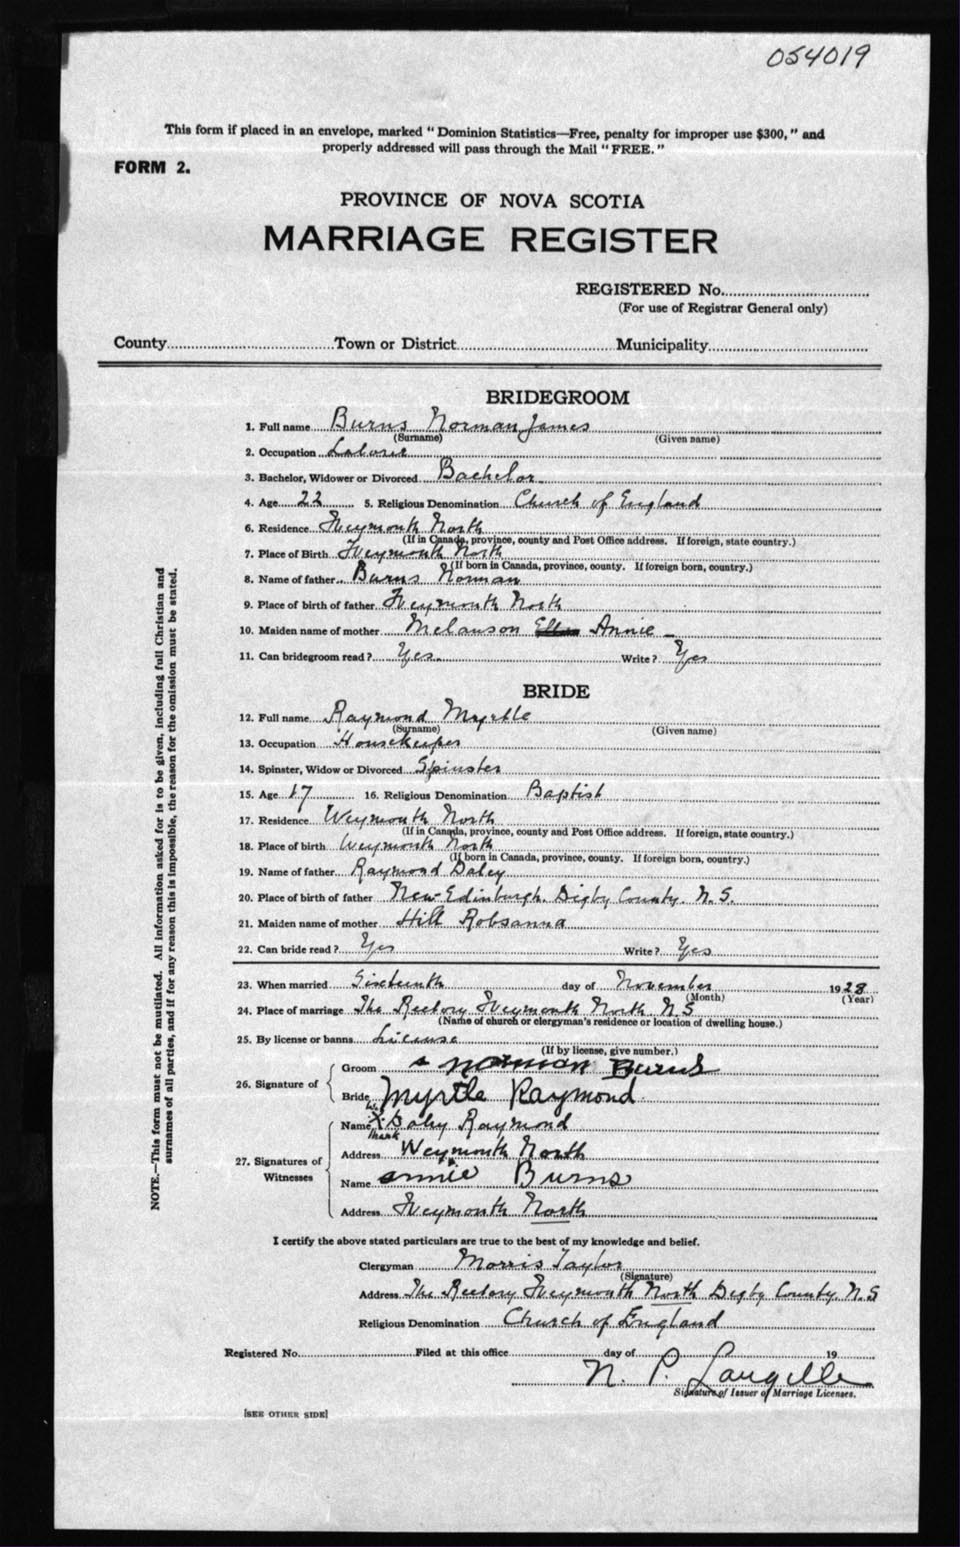 054019
This form if placed in an envelope, marked "Dominion Statistics—Free, penalty for improper use $300," and
properly addressed will pass through the Mail "FREE."
FORM 2.
PROVINCE OF NOVA SCOTIA
MARRIAGE REGISTER
REGISTERED No.
(For use of Registrar General only)
County Town or District Municipality
BRIDEGROOM
1. Full name Burns Norman James
(Surname) (Given name)
2. Occupation Laborer
3. Bachelor, Widower or Divorced Bachelor
4. Age 22 5. Religious Denomination Church of England
6. Residence Weymouth North
(If in Canada, province, county and Post Office address. If foreign, state country.)
7. Place of Birth Weymouth North
(If born in Canada, province, county. If foreign born, country.)
8. Name of father Burns Norman
9. Place of birth of father Weymouth North
10. Maiden name of mother Melanson Ellen Annie
11. Can bridegroom read? Yes. Write? Yes
BRIDE
12. Full name Raymond Myrtle
(Surname) (Given name)
13. Occupation Housekeeper
14. Spinster, Widow or Divorced Spinster
15. Age 17 16. Religious Denomination Baptist
17. Residence Weymouth North
(If in Canada, province, county and Post Office address. If foreign, state country.)
18. Place of birth Weymouth North
(If born in Canada, province, county. If foreign born, country.)
19. Name of father Raymond Daley
20. Place of birth of father New Edinburgh. Digby County. N.S.
21. Maiden name of mother Hill Robsanna
22. Can bride read? Yes Write? Yes
23. When married Sixteenth day of November 1928
(Month) (Year)
24. Place of marriage The Rectory Weymouth North N.S
(Name of church or clergyman's residence or location of dwelling house.)
25. By license or banns License
(If by license, give number.)
26. Signature of
Groom Norman Burns
Bride Myrtle Raymond
27. Signatures of Witnesses
Name his X mark Daley Raymond
Address Weymouth North
Name annie Burns
Address Weymouth North
I certify the above stated particulars are true to the best of my knowledge and belief.
Clergyman Morris Taylor
(Signature)
Address The Rectory Weymouth North Digby County. N.S
Religious Denomination Church of England
Registered No. Filed at this office day of 19
N. P. Langille
Signature of Issuer of Marriage Licenses.
[SEE OTHER SIDE]
NOTE.—This form must not be mutilated. All information asked for is to be given, including full Christian and
surnames of all parties, and if for any reason this is impossible, the reason for the omission must be stated.